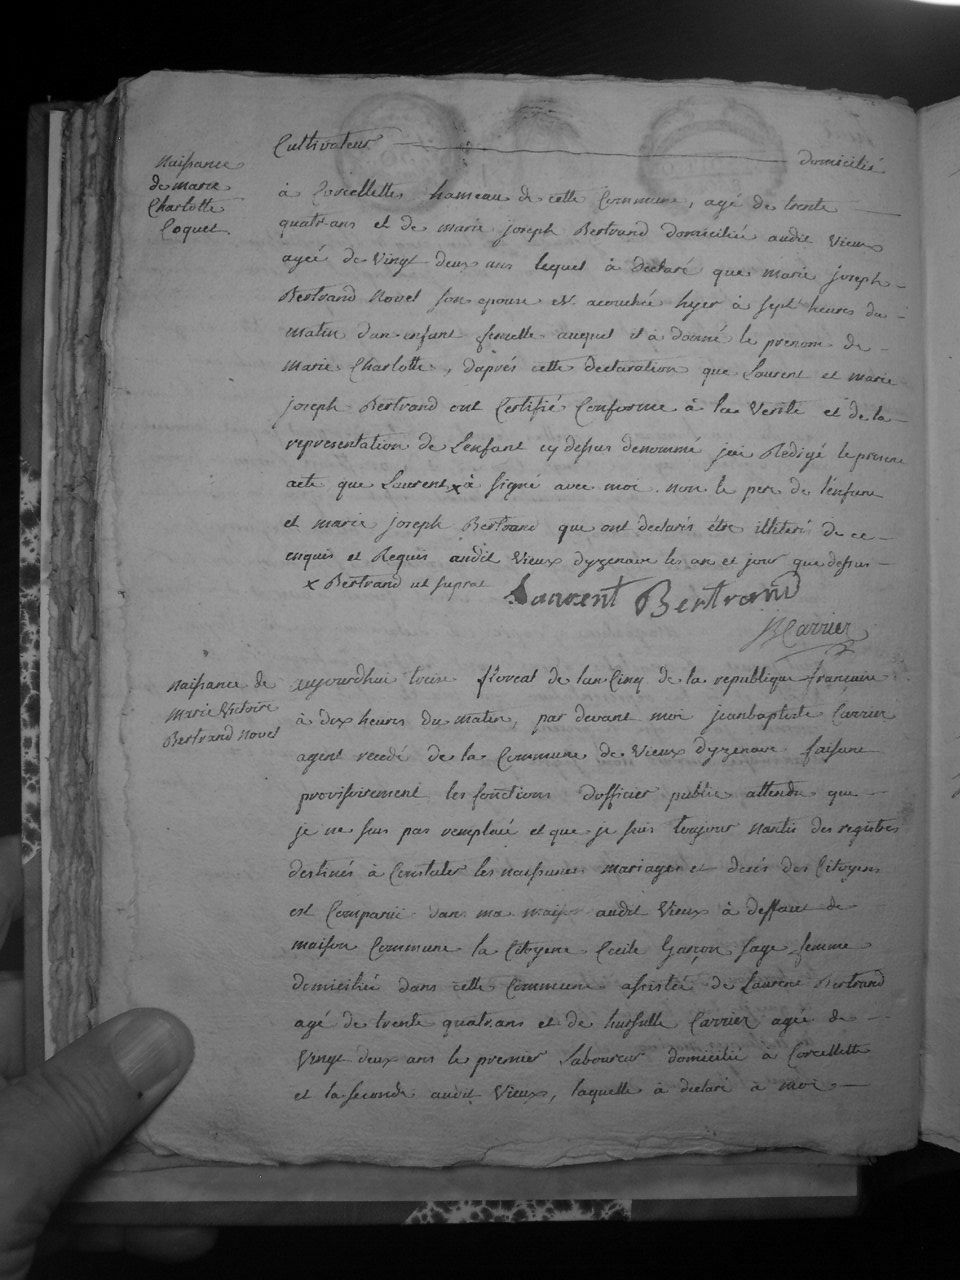 Cultivateur domicilié
Naissance
de marie
Charlotte
Coquet
à Corcellettes hameau de cette Commune, agé de trente
quatr-ans et de marie joseph Bertrand domiciliée audit Vieux
agée de Vingt deux ans lequel à declaré que marie joseph
Bertrand Novel son epouse est acouchée hyer à sept heures du
matin d'un enfant femelle auquel il à donné le prenom de
Marie Charlotte, daprés cette declaration que Laurent et marie
joseph Bertrand ont Certifié Conforme à la Verité et de la
representation de L'enfant cy dessus denommé jai Redigé le present
acte que Laurent x à signé avec moi. non le pere de lenfant
et marie joseph Bertrand que ont declarés étre illiterés de ce
enquis et Requis audit Vieux dyzenave les an et jour que dessus
x Bertrand ut suprat Laurent Bertrand
Carrier
Naissance de
Marie Victoire
Bertrand Novel
aujourdhui treise floreal de lan Cinq de la republique françaine
à dix heures du matin, par devant moi jeanbaptiste Carrier
agent de la Commune de Vieux dyzenave faisant
provisoirement les fonctions d'officier public attendu que
je ne suis pas remplacé et que je suis toujour nantis des registres
destinés à Constater les naissances mariages et decés des Citoyens
est Comparüe dans ma maison audit Vieux à deffaut de
maison Commune la Citoyene Cecile Garçon sage femme
domiciliée dans cette Commune assistée de Laurent Bertrand
agé de trente quatr-ans et de Carrier agée de
Vingt deux ans le premier Laboureur domicilié à Corcellette
et la seconde audit Vieux, laquelle à declaré à moi